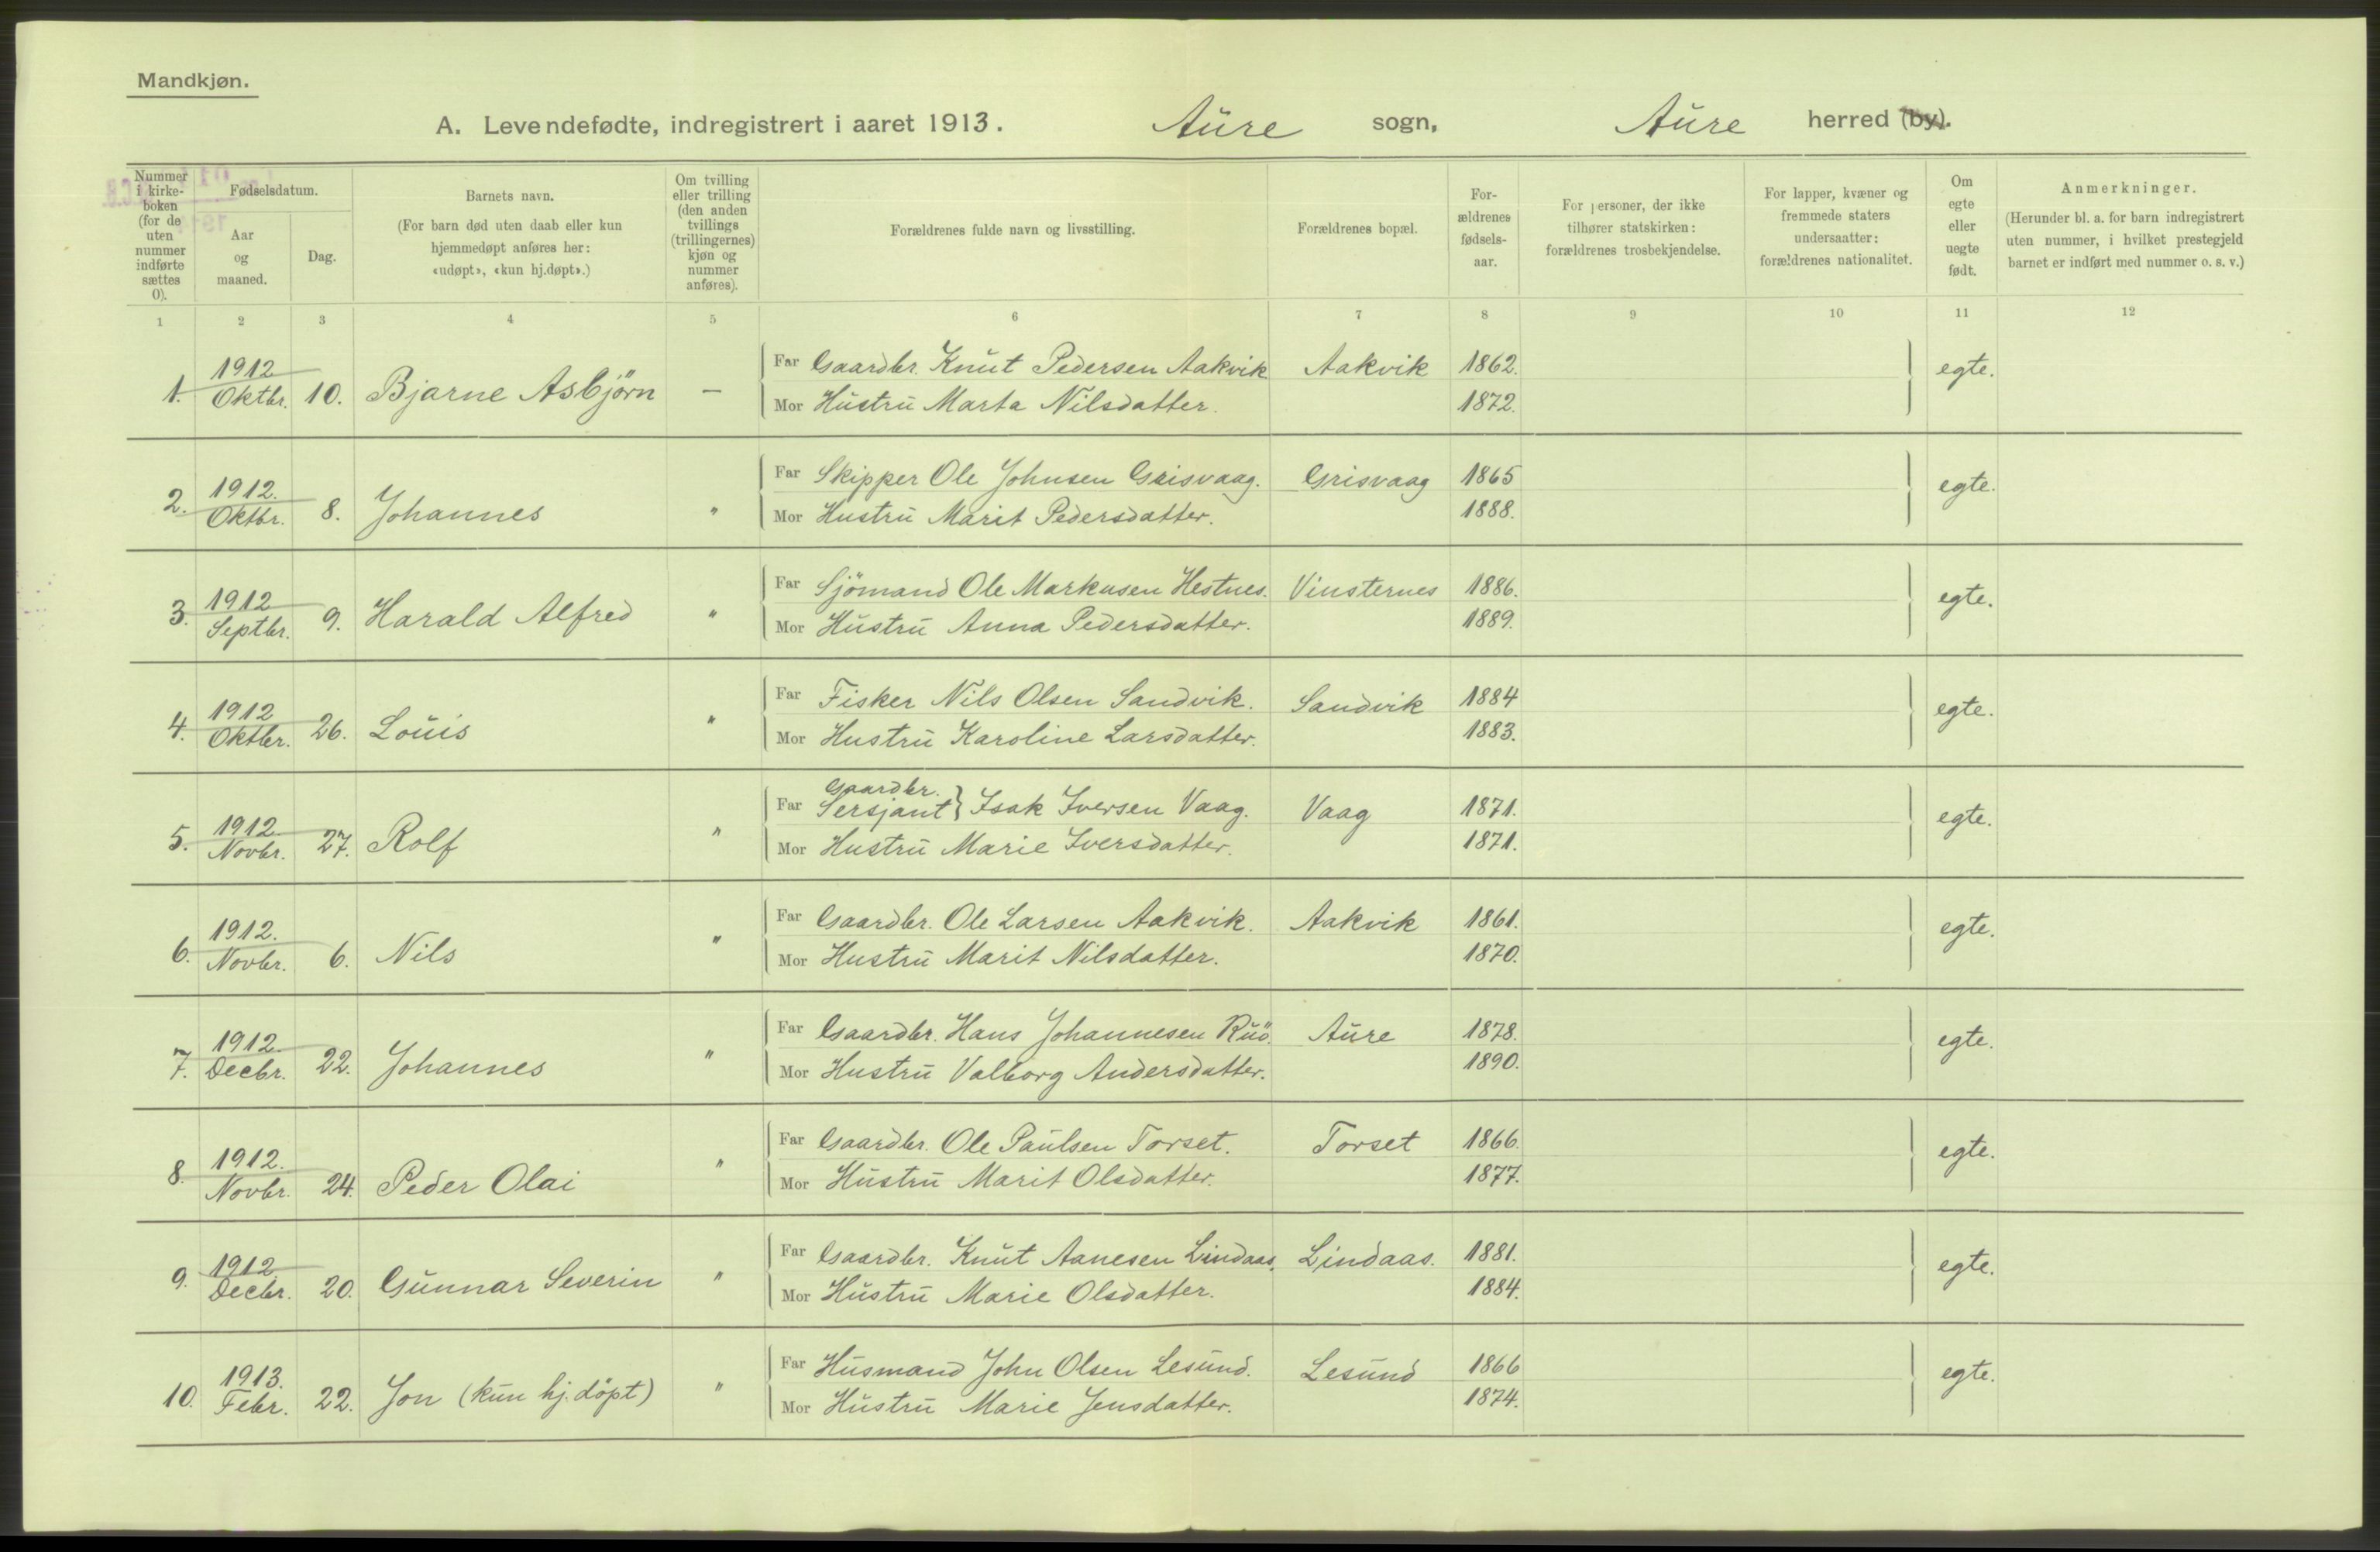 Mandkjøn.
A. Levendefødte, indregistrert i aaret 1913. Aure sogn, Aure herred (by).
Nummer i kirkeboken (for de uten nummer indførte sættes 0).
Fødselsdatum.
Aar og maaned.
Dag.
Barnets navn.
(For barn død uten daab eller kun hjemmedøpt anføres her: «udøpt», «kun hj.døpt».)
Om tvilling eller trilling (den anden tvillings (trillingernes) kjøn og nummer anføres).
Forældrenes fulde navn og livsstilling.
Forældrenes bopæl.
Forældrenes fødselsaar.
For personer, der ikke tilhører statskirken: forældrenes trosbekjendelse.
For lapper, kvæner og fremmede staters undersaatter: forældrenes nationalitet.
Om egte eller uegte født.
Anmerkninger.
(Herunder bl. a. for barn indregistrert uten nummer, i hvilket prestegjeld barnet er indført med nummer o. s. v.)
1 2 3 4 5 6 7 8 9 10 11 12
1. 1912 Oktbr. 10. Bjarne Asbjörn — Far Gaardbr. Knut Pedersen Aakvik Aakvik 1862. egte.
Mor Hustru Marta Nilsdatter. 1872.
2. 1912. Oktbr. 8. Johannes " Far Skipper Ole Johnsen Grisvaag. Grisvaag 1865 egte.
Mor Hustru Marit Pedersdatter. 1888.
3. 1912 Septbr. 9. Harald Alfred " Far Sjömand Ole Markusen Hestnes. Vinsternes 1886. egte.
Mor Hustru Anna Pedersdatter. 1889.
4. 1912 Oktbr. 26. Louis " Far Fisker Nils Olsen Sandvik. Sandvik 1884 egte.
Mor Hustru Karoline Larsdatter. 1883.
5. 1912 Novbr. 27. Rolf " Far Gaardbr. Sersjant} Isak Iversen Vaag. Vaag 1871. egte.
Mor Hustru Marie Iversdatter. 1871.
6. 1912. Novbr. 6. Nils " Far Gaardbr. Ole Larsen Aakvik. Aakvik 1861. egte.
Mor Hustru Marit Nilsdatter. 1870.
7. 1912. Decbr. 22. Johannes " Far Gaardbr. Hans Johannesen Ruö. Aure 1878. egte.
Mor Hustru Valborg Andersdatter. 1890.
8. 1912. Novbr. 24. Peder Olai " Far Gaardbr. Ole Paulsen Torset. Torset 1866. egte.
Mor Hustru Marit Olsdatter. 1877.
9. 1912 Decbr. 20. Gunnar Severin " Far Gaardbr. Knut Aanesen Lindaas. Lindaas. 1881. egte.
Mor Hustru Marie Olsdatter. 1884.
10. 1913. Febr. 22. Jon (kun hj. döpt) " Far Husmand John Olsen Lesund. Lesund 1866 egte.
Mor Hustru Marie Jensdatter. 1874.